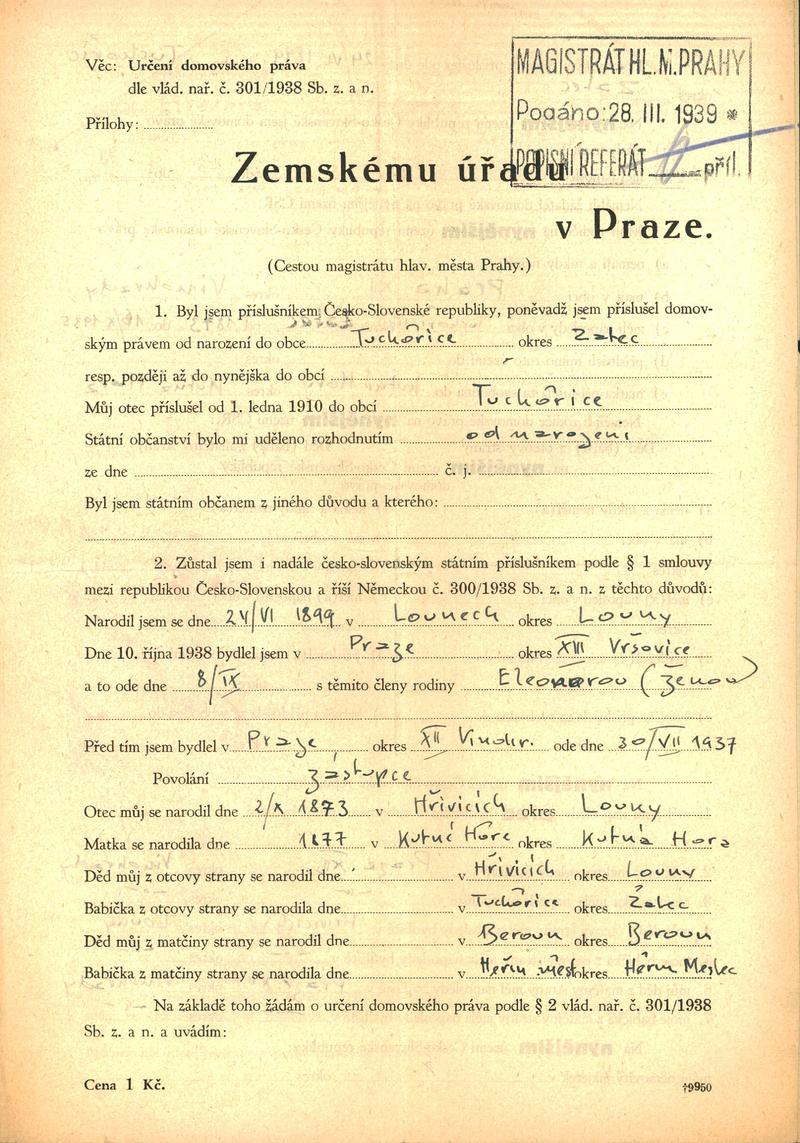 Věc: Určení domovského práva
dle vlád. nař. č. 301/1938 Sb. z. a n.
Přílohy:
MAGISTRÁT HL. M. PRAHY
Podáno: 28. III. 1939 *
POPISNÍ REFERÁT příl.
Zemskému úřadu
v Praze.
(Cestou magistrátu hlav. města Prahy.)
1. Byl jsem příslušníkem Česko-Slovenské republiky, poněvadž jsem příslušel domov-
ským právem od narození do obce Tuchořice okres Žatec
resp. později až do nynějška do obcí
Můj otec příslušel od 1. ledna 1910 do obcí Tuchořice
Státní občanství bylo mi uděleno rozhodnutím od narození
ze dne č. j.
Byl jsem státním občanem z jiného důvodu a kterého:
2. Zůstal jsem i nadále česko-slovenským státním příslušníkem podle § 1 smlouvy
mezi republikou Česko-Slovenskou a říší Německou č. 300/1938 Sb. z. a n. z těchto důvodů:
Narodil jsem se dne 24/VI 1899 v Lounech okres Louny
Dne 10. října 1938 bydlel jsem v Praze okres XIII Vršovice
a to ode dne 8/IX s těmito členy rodiny Eleonorou (ženou)
Před tím jsem bydlel v Praze okres XII Vinohr. ode dne 30/VII 1937
Povolání zástupce
Otec můj se narodil dne 2/X 1873 v Hřivicích okres Louny
Matka se narodila dne 1877 v Kutné Hoře okres Kutná Hora
Děd můj z otcovy strany se narodil dne v Hřivicích okres Louny
Babička z otcovy strany se narodila dne v Tuchořice okres Žatec
Děd můj z matčiny strany se narodil dne v Beroun okres Beroun
Babička z matčiny strany se narodila dne v Heřm. měst okres Heřm. Městec
Na základě toho žádám o určení domovského práva podle § 2 vlád. nař. č. 301/1938
Sb. z. a n. a uvádím:
Cena 1 Kč.
†9950